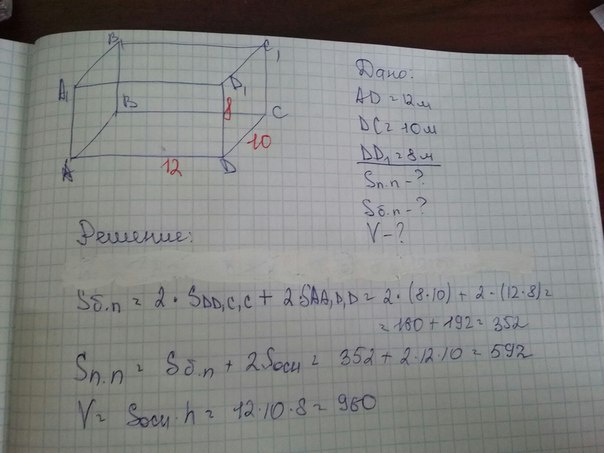 B₁
C₁
A₁
D₁
B
8
C
10
A
12
D
Дано:
AD = 12 м
DC = 10 м
DD₁ = 8 м
Sп.п - ?
Sб.п - ?
V - ?
Решение:
Sб.п = 2 · SDD₁C₁C + 2SAA₁D₁D = 2 · (8·10) + 2 · (12·8) =
= 160 + 192 = 352
Sп.п = Sб.п + 2Sосн = 352 + 2·12·10 = 592
V = Sосн · h = 12·10·8 = 960